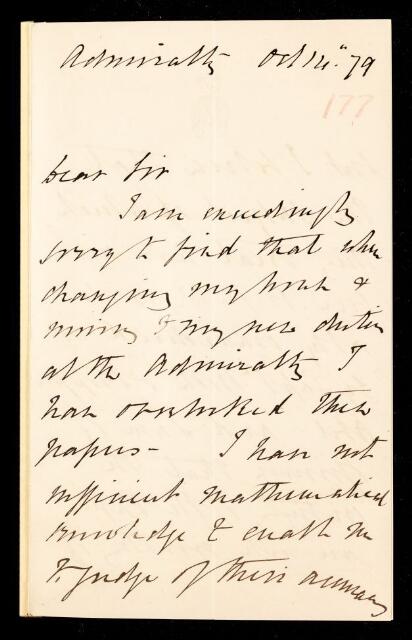 Admiralty Oct 14" 79
177
Dear Sir
I am exceedingly
sorry to find that when
changing my house &
moving to my new duties
at the Admiralty I
have overlooked these
papers - I have not
sufficient mathematical
knowledge to enable me
to judge of their accuracy